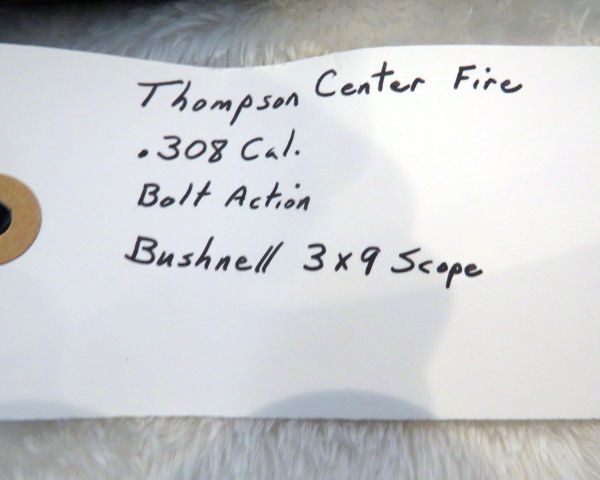 Thompson Center Fire
.308 Cal.
Bolt Action
Bushnell 3x9 Scope